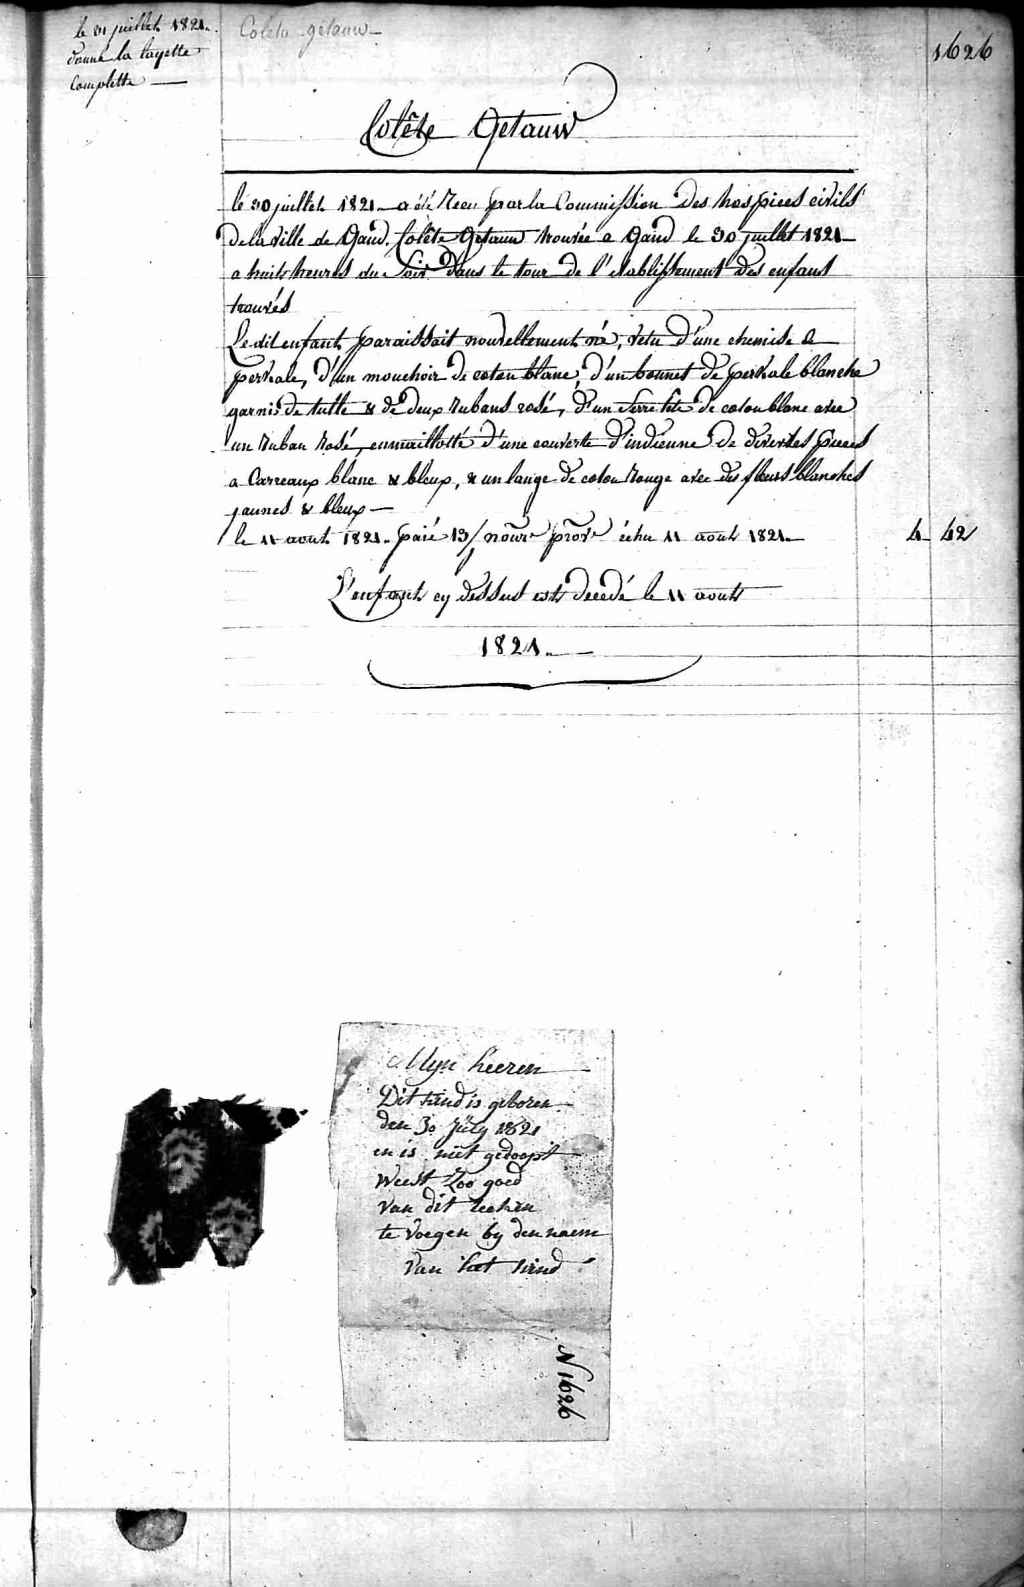 le 31 juillet 1821.
donné la layette
complette —
Coleta getauw —
1626
Colête Getauw
le 30 juillet 1821 — a été recu par la Commission des hospices civils
De la ville de Gand, Colête Getauw trouvée a Gand le 30 juillet 1821 —
a huits heures du Soir dans le tour de l'etablissement des enfans
trouvés
Le dit enfant paraissait nouvellement né, vetu d'une chemise de
perkale, d'un mouchoir de coton blanc, d'un bonnet de perkale blanche
garni de tulle & de deux rubans rosé, d'un Serre tete de coton blanc avec
un ruban rosé, enmaillotté d'une couverte d'indienne de diverses pieces
a Carreaux blanc & bleux, & un lange de coton rouge avec des fleurs blanches
jaunes & bleux —
le 11 aout 1821. paié 13/ nourre prove échu 11 aout 1821. — 4 - 42
L'enfant cy dessus est decedé le 11 aout
1821. —
Myn heeren
Dit kind is geboren
den 30 july 1821
en is niet gedoopt
Weest Zoo goed
van dit teeken
te voegen by den naem
van het kind
N 1626